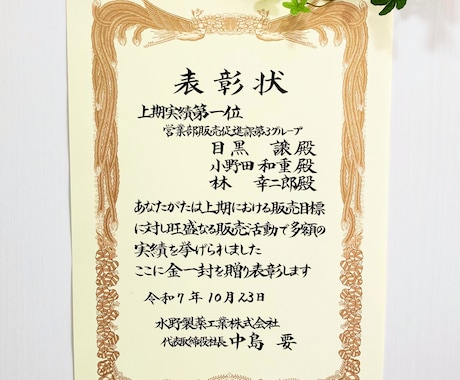 表彰状
上期実績第一位
営業部販売促進課第3グループ
目黒 譲殿
小野田和重殿
林 幸二郎殿
あなたがたは上期における販売目標
に対し旺盛なる販売活動で多額の
実績を挙げられました
ここに金一封を贈り表彰します
令和7年10月23日
水野製薬工業株式会社
代表取締役社長 中島 要